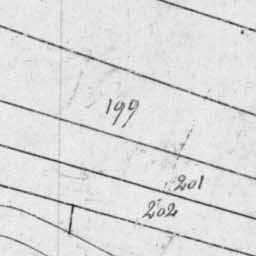 199
201
202